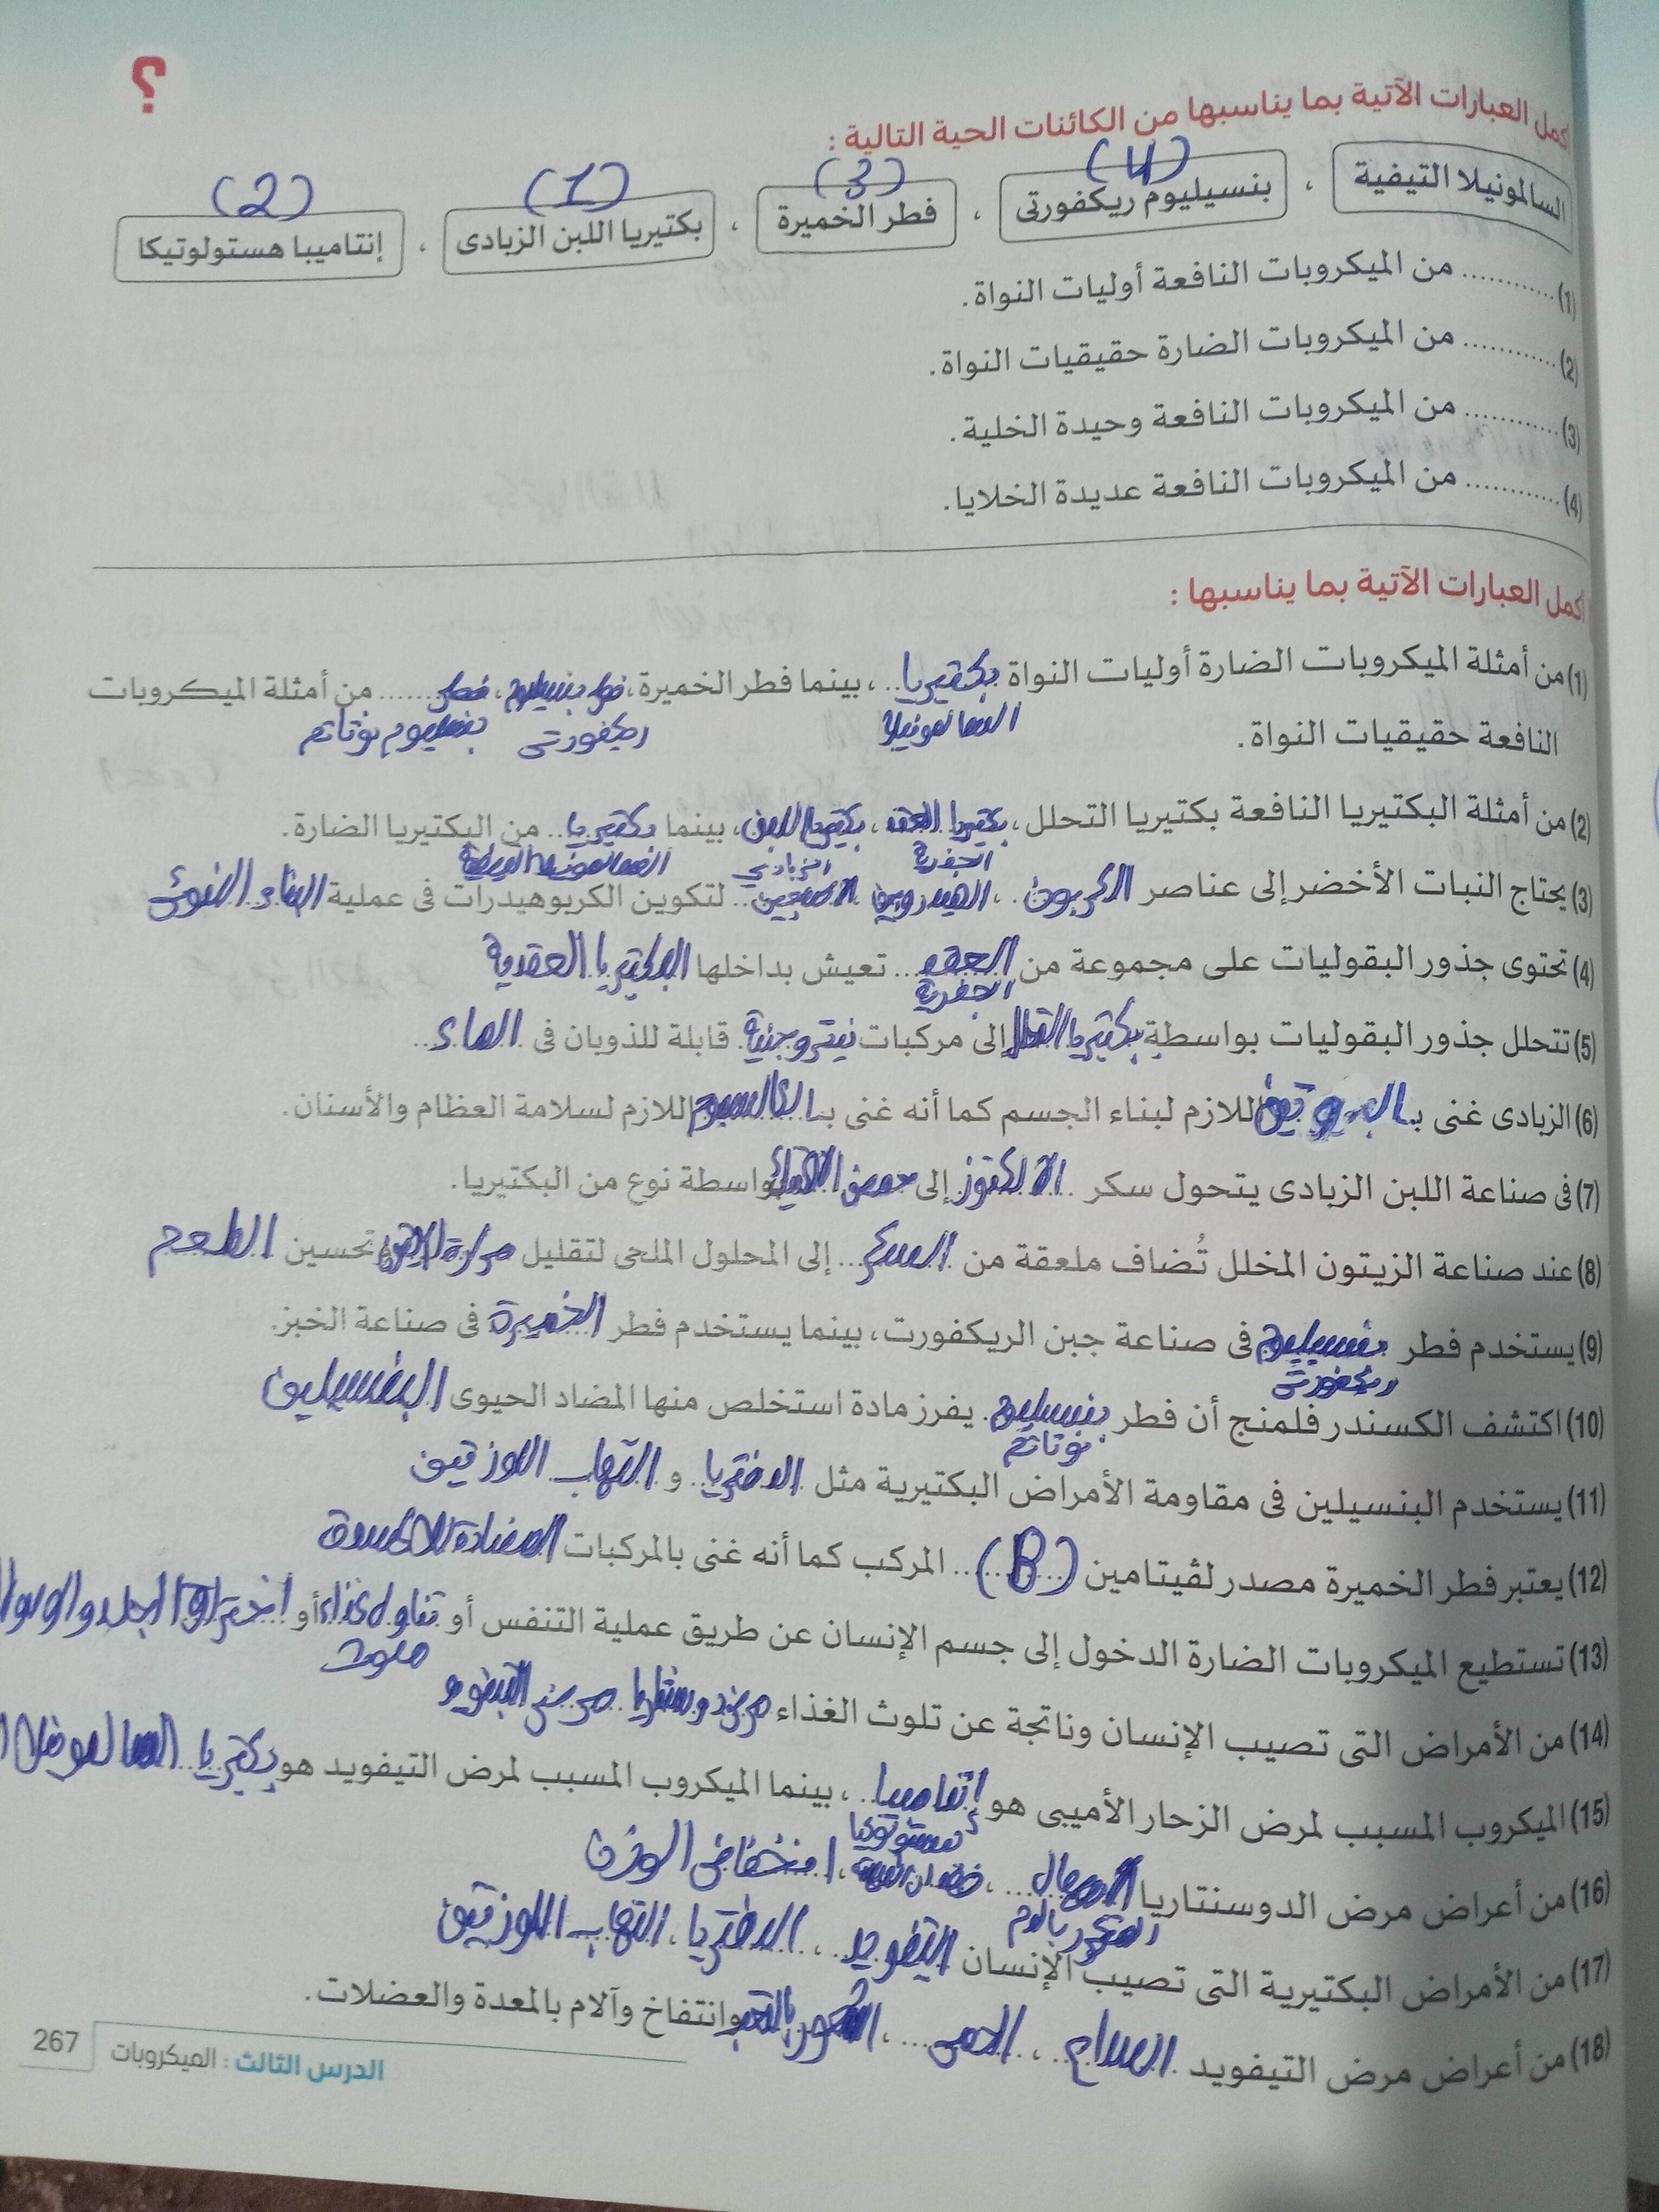 ؟
أكمل العبارات الآتية بما يناسبها من الكائنات الحية التالية :
(4) (3) (1) (2)
السالمونيلا التيفية ، بنسيليوم ريكفورتى ، فطر الخميرة ، بكتيريا اللبن الزبادى ، إنتاميبا هستولوتيكا
(1) ............ من الميكروبات النافعة أوليات النواة.
(2) ............ من الميكروبات الضارة حقيقيات النواة.
(3) ............ من الميكروبات النافعة وحيدة الخلية.
(4) ............ من الميكروبات النافعة عديدة الخلايا.
أكمل العبارات الآتية بما يناسبها :
(1) من أمثلة الميكروبات الضارة أوليات النواة بكتيريا ، بينما فطر الخميرة، فطر بنسيليوم ، فطر ...... من أمثلة الميكروبات
السالمونيلا ريكفورتى بنسيليوم نوتاتم
النافعة حقيقيات النواة.
(2) من أمثلة البكتيريا النافعة بكتيريا التحلل ، بكتيريا العقد ، بكتيريا اللبن ، بينما بكتيريا .. من البكتيريا الضارة.
الجذرية الزبادي السالمونيلا
(3) يحتاج النبات الأخضر إلى عناصر الكربون ، الهيدروجين الأكسجين .. لتكوين الكربوهيدرات فى عملية البناء الضوئى
(4) تحتوى جذور البقوليات على مجموعة من العقد ... تعيش بداخلها البكتيريا العقدية
الجذرية
(5) تتحلل جذور البقوليات بواسطة بكتيريا التحلل إلى مركبات نيتروجينية قابلة للذوبان فى الماء
(6) الزبادى غنى بـ البروتين اللازم لبناء الجسم كما أنه غنى بـ الكالسيوم اللازم لسلامة العظام والأسنان.
(7) فى صناعة اللبن الزبادى يتحول سكر اللاكتوز إلى حمض اللاكتيك بواسطة نوع من البكتيريا.
(8) عند صناعة الزيتون المخلل تُضاف ملعقة من السكر ... إلى المحلول الملحى لتقليل مرارة الزيتون وتحسين الطعم
(9) يستخدم فطر بنسيليوم فى صناعة جبن الريكفورت، بينما يستخدم فطر الخميرة فى صناعة الخبز.
ريكفورتى
(10) اكتشف الكسندر فلمنج أن فطر بنسيليوم يفرز مادة استخلص منها المضاد الحيوى البنسيلين
نوتاتم
(11) يستخدم البنسيلين فى مقاومة الأمراض البكتيرية مثل الدفتريا و التهاب اللوزتين
(12) يعتبر فطر الخميرة مصدر لڤيتامين (B) .. المركب كما أنه غنى بالمركبات المضادة للأكسدة
(13) تستطيع الميكروبات الضارة الدخول إلى جسم الإنسان عن طريق عملية التنفس أو تناول غذاء أو اختراق الجلد
ملوث
(14) من الأمراض التى تصيب الإنسان وناتجة عن تلوث الغذاء مرض دوسنتاريا . مرض التيفويد
(15) الميكروب المسبب لمرض الزحار الأميبى هو إنتاميبا ، بينما الميكروب المسبب لمرض التيفويد هو بكتيريا السالمونيلا
هستولوتيكا
(16) من أعراض مرض الدوسنتاريا الإسهال ... ، فقدان الشهية ، انخفاض الوزن
بالدم
(17) من الأمراض البكتيرية التى تصيب الإنسان التيفويد ... ، الدفتريا ، التهاب اللوزتين
(18) من أعراض مرض التيفويد الصداع ، الحمى ... ، الشعور بالتعب وانتفاخ وآلام بالمعدة والعضلات.
الدرس الثالث : الميكروبات 267